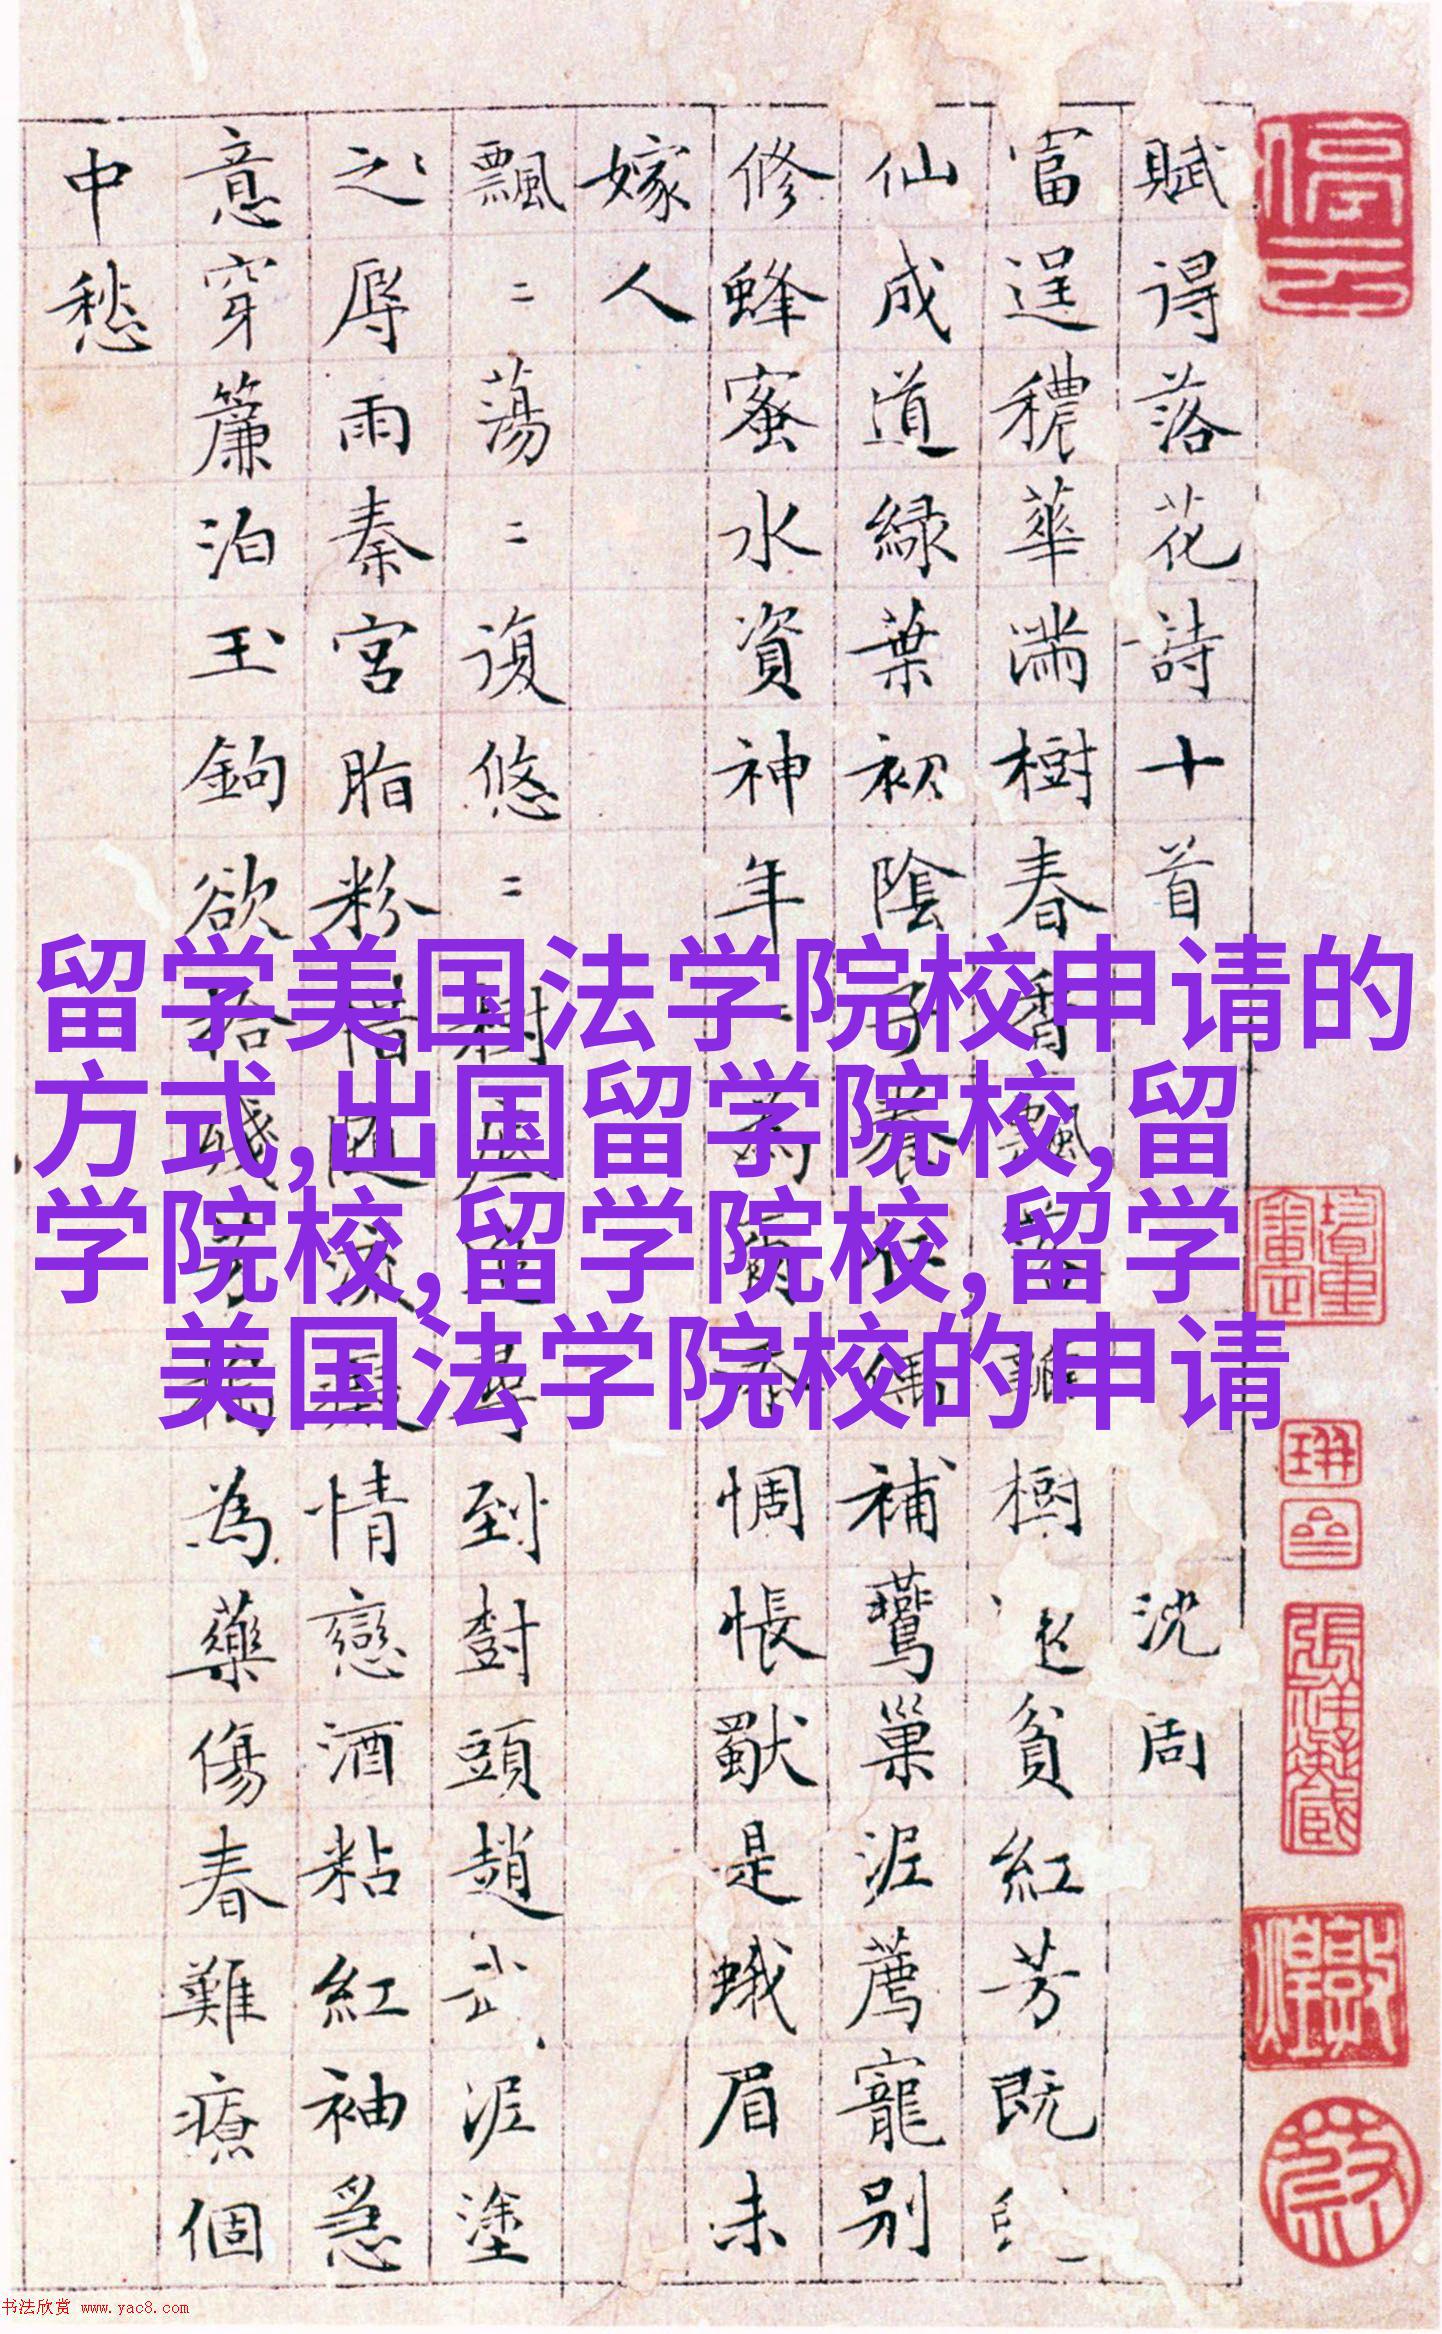 賦得落花詩十首 沈周
富逞穠華滿樹春香飄樹貧紅芳既
仙成道綠葉初陰子養仁偶補鶯巢泥薦寵別
修蜂蜜水資神年為惆悵獸是蛾眉未
嫁人
飄〻蕩〻復悠〻樹底追尋到樹頭趙武泥塗
之〻辱雨秦宮脂粉惜隨流癡情戀酒粘紅袖急
意穿簾泊玉鉤欲拾殘芳搗為藥傷春難療個
中愁
留学美国法学院校申请的
方式,出国留学院校,留
学院校,留学院校,留学
美国法学院校的申请
书法欣赏 www.yac8.com